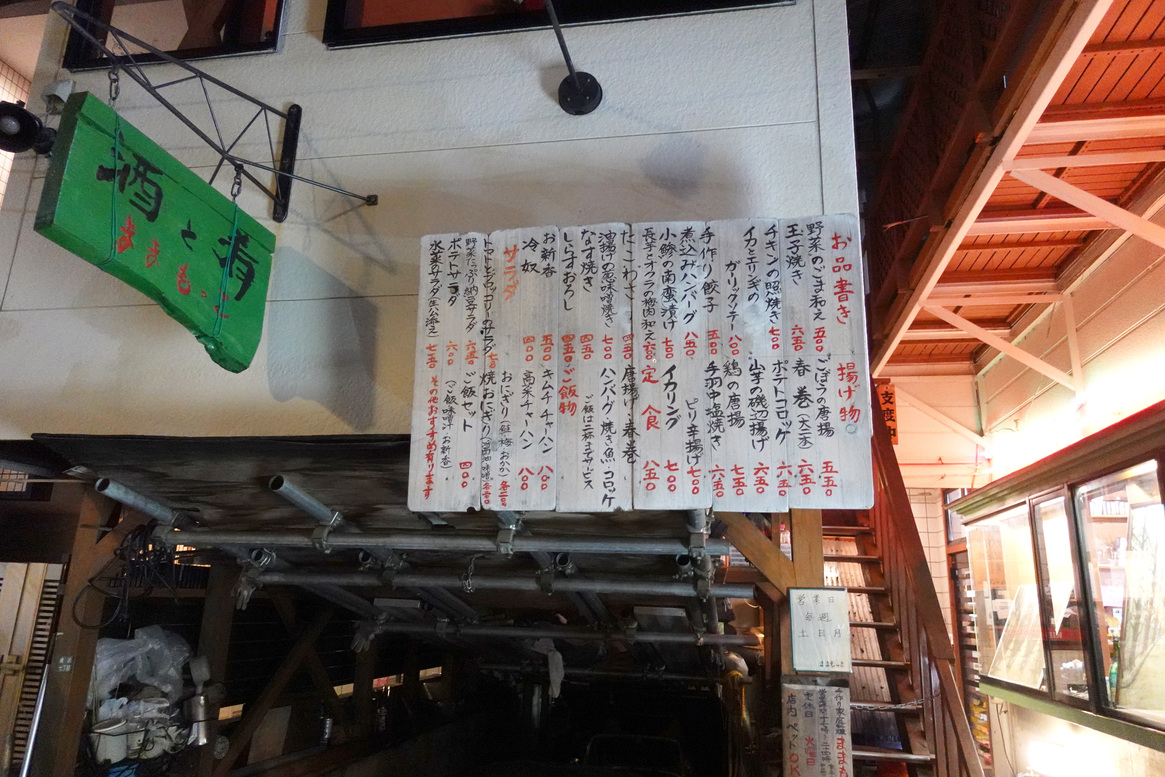 酒と肴
ままもっこ
お品書き
野菜のごま和え 五五〇
玉子焼き 六五〇
チキンの照焼き 七〇〇
イカとエリンギの
ガーリックソテー 八〇〇
手作り餃子 五五〇
煮込みハンバーグ 八五〇
小鯵の南蛮漬け 七〇〇
長芋とオクラの梅肉和え
たこわさび 四五〇
油揚げの葱味噌焼き 七〇〇
なす焼き 四五〇
しらすおろし 四五〇
お新香 五〇〇
冷奴 四〇〇
サラダ
トマトとブロッコリーのサラダ
野菜たっぷり納豆サラダ 六五〇
ポテトサラダ 六〇〇
水菜サラダ
揚げ物
ごぼうの唐揚 五五〇
春巻(大二本) 六五〇
ポテトコロッケ 六五〇
山芋の磯辺揚げ 六五〇
鶏の唐揚 七五〇
手羽中塩焼き 六五〇
ピリ辛揚げ 七〇〇
イカリング 七〇〇
定食 八五〇
唐揚 春巻
ハンバーグ 焼き魚 コロッケ
ご飯は二杯までサービス
ご飯物
キムチチャーハン 八〇〇
高菜チャーハン 八〇〇
おにぎり(鮭 梅 おかか)
焼おにぎり
ご飯セット 四〇〇
(ご飯 味噌汁 お新香)
その他おすすめ有ります
支度中
営業日
毎週
土日月
手作り家庭料理
定休日 火曜日
店内ペットOK